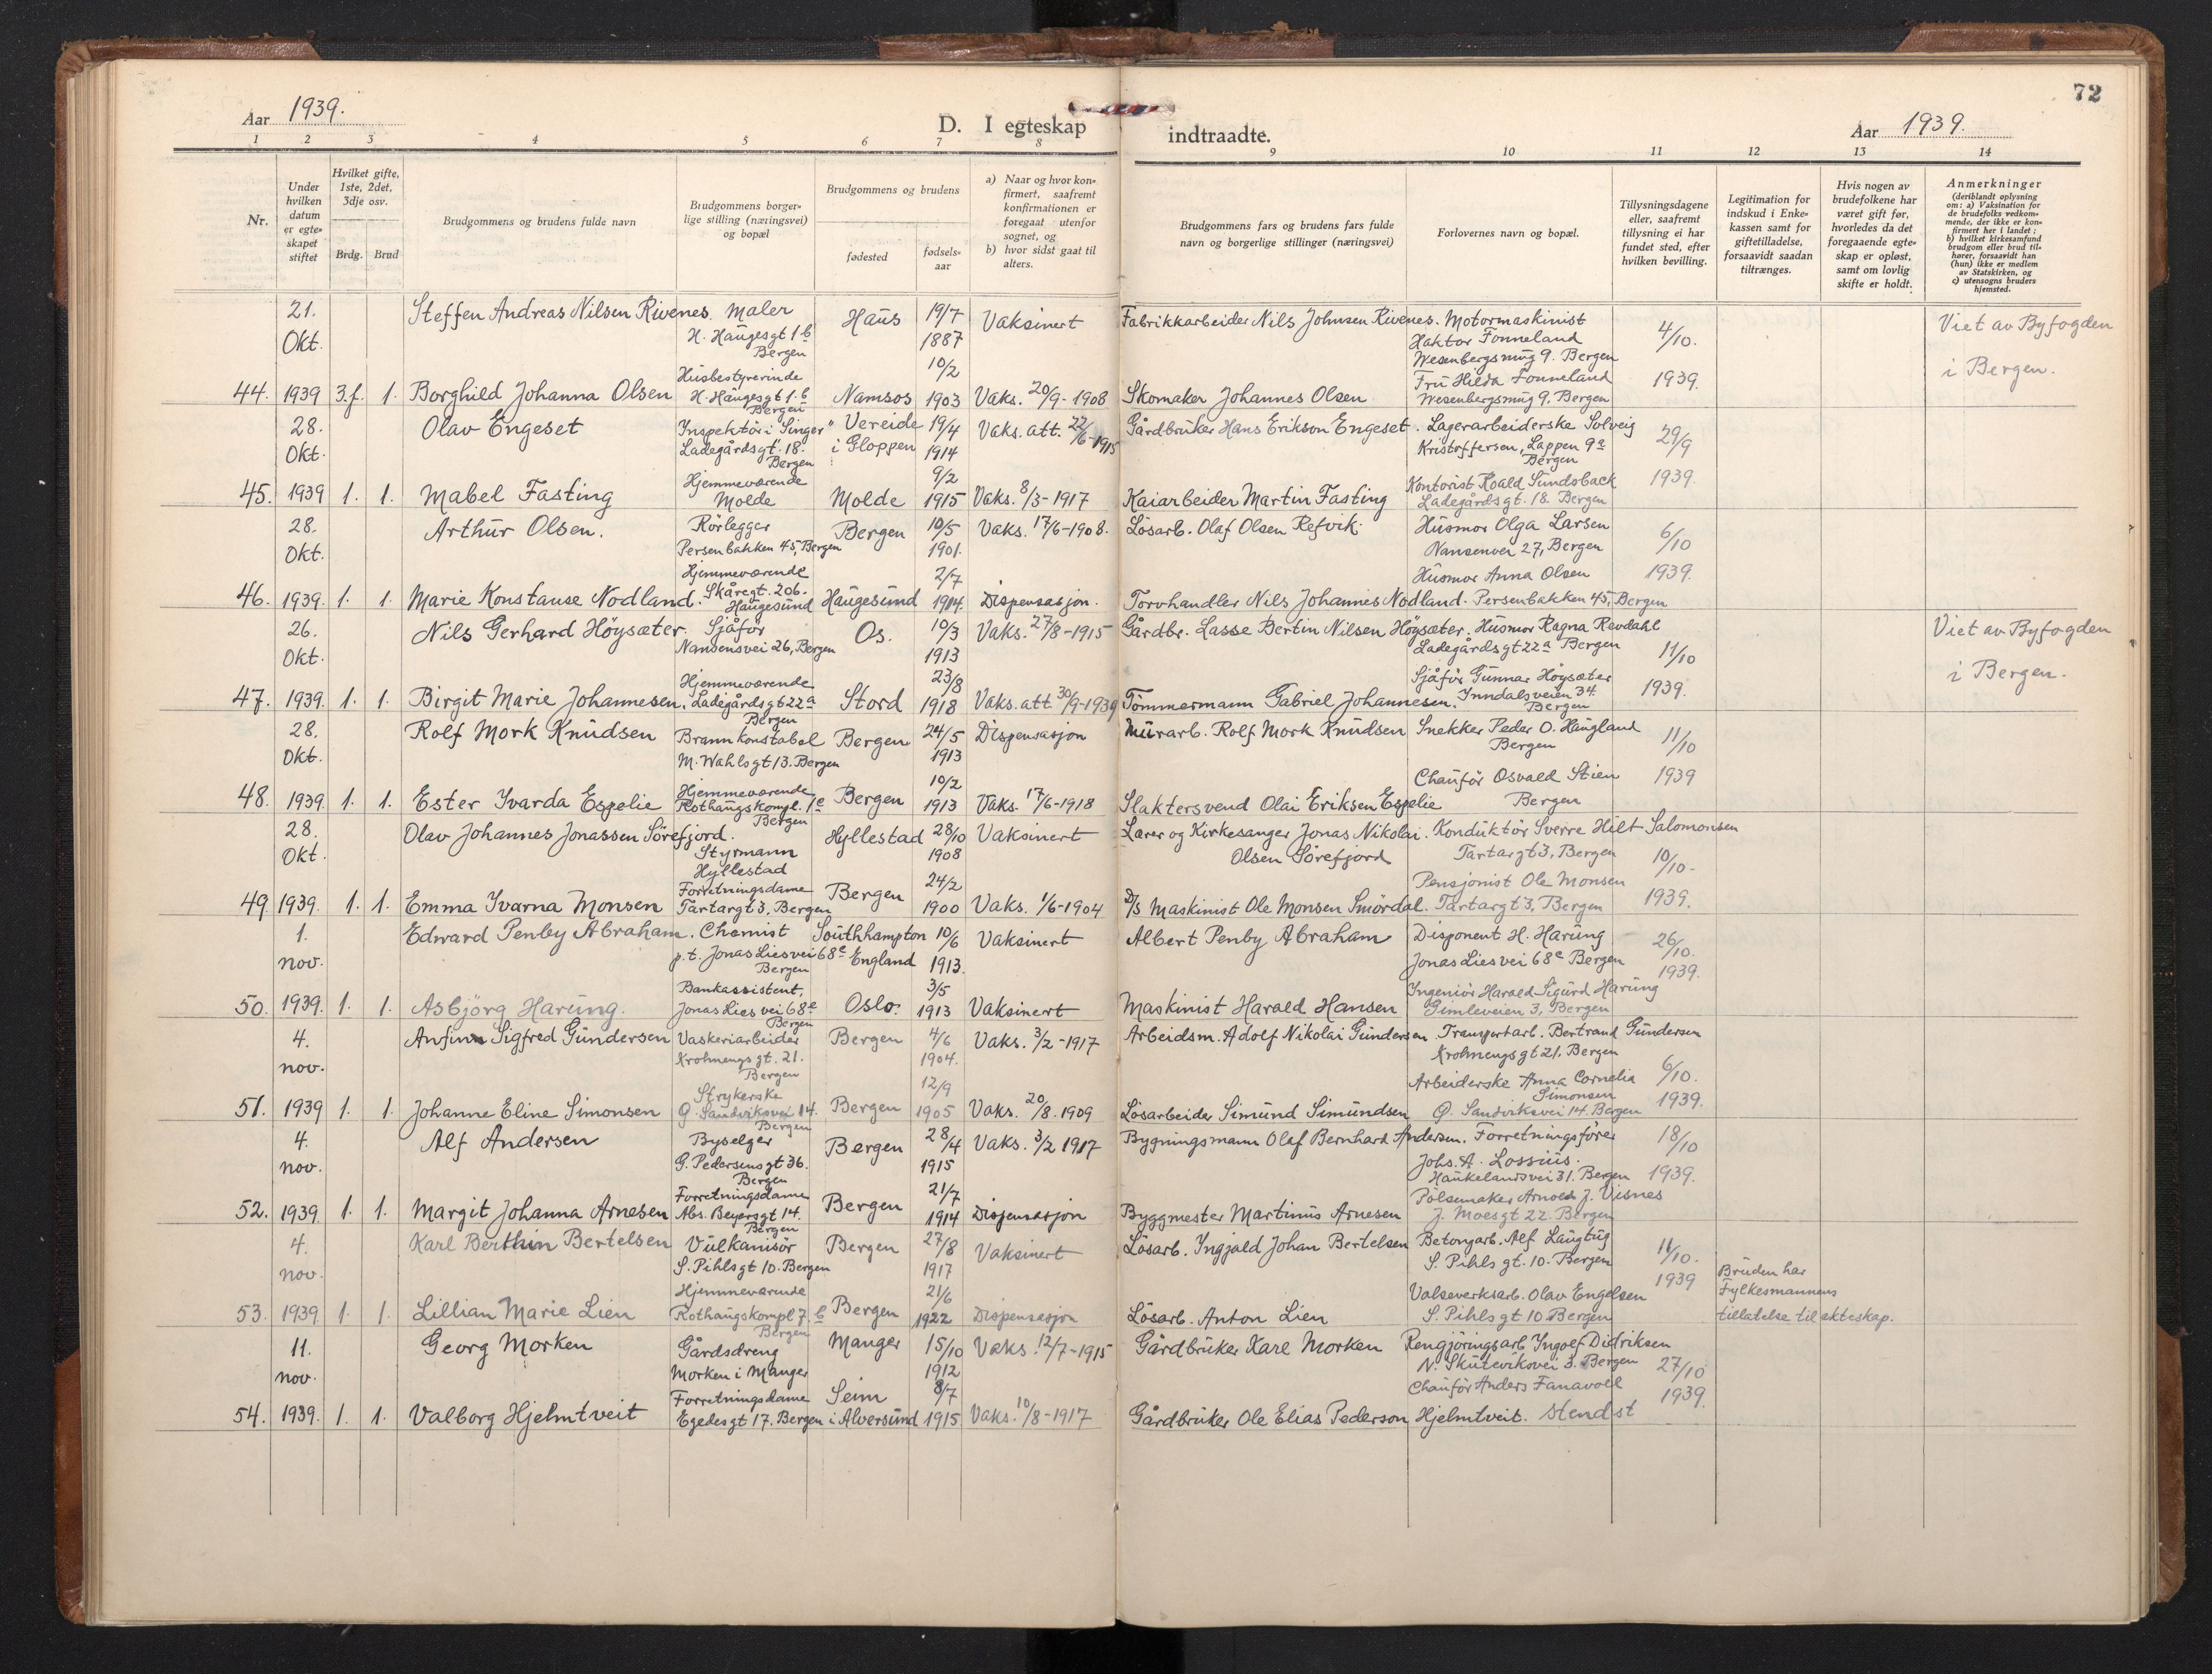 72
Aar 1939.
D. I egteskap indtraadte.
Aar 1939.
1 2 3 4 5 6 7 8 9 10 11 12 13 14
Nr.
Under hvilken datum er egteskapet stiftet
Hvilket gifte, 1ste, 2det, 3dje osv.
Brdg. Brud
Brudgommens og brudens fulde navn
Brudgommens borgerlige stilling (næringsvei) og bopæl
Brudgommens og brudens
fødested
fødselsaar
a) Naar og hvor konfirmert, saafremt konfirmationen er foregaat utenfor sognet, og
b) hvor sidst gaat til alters.
Brudgommens fars og brudens fars fulde navn og borgerlige stillinger (næringsvei)
Forlovernes navn og bopæl.
Tillysningsdagene eller, saafremt tillysning ei har fundet sted, efter hvilken bevilling.
Legitimation for indskud i Enkekassen samt for giftetilladelse, forsaavidt saadan tiltrænges.
Hvis nogen av brudefolkene har været gift før, hvorledes da det foregaaende egteskap er opløst, samt om lovlig skifte er holdt.
Anmerkninger
(deriblandt oplysning om: a) Vaksination for de brudefolks vedkommende, der ikke er konfirmert her i landet; b) hvilket kirkesamfund brudgom eller brud tilhører, forsaavidt han (hun) ikke er medlem av Statskirken, og c) utensogns bruders hjemsted.
21. Okt. Steffen Andreas Nilsen Rivenes. Maler
H. Haugesgt 1 b
Bergen
Haus 19/7 1887 Vaksinert
Fabrikkarbeider Nils Johnsen Rivenes. Motormaskinist
Haktor Fonneland
Wesenbergsmug 9. Bergen
4/10. 1939.
Viet av Byfogden
i Bergen.
44. 1939 3.f. 1. Borghild Johanna Olsen
Husbestyrerinde
H. Haugesgt 1. b
Bergen
Namsos 10/2 1903 Vaks. 20/9-1908
Skomaker Johannes Olsen
Fru Hilda Fonneland
Wesenbergsmug 9. Bergen
28. Okt. Olav Engeset
Inspektör i "Singer"
Ladegårdsgt. 18.
Bergen
Vereide i Gloppen 19/4 1914 Vaks. att. 22/6-1915
Gårdbruker Hans Erikson Engeset. Lagerarbeiderske Solveig
Kristoffersen, Lappen 9a
Bergen
29/9 1939.
45. 1939 1. 1. Mabel Fasting
Hjemmeværende
Molde
Molde 9/2 1915 Vaks. 8/3-1917
Kaiarbeider Martin Fasting
Kontorist Roald Sundsback
Ladegårdsgt. 18. Bergen
28. Okt. Arthur Olsen.
Rörlegger
Persenbakken 45, Bergen
Bergen 10/5 1901. Vaks. 17/6-1908.
Lösarb. Olaf Olsen Refvik.
Husmor Olga Larsen
Nansenvei 27, Bergen
6/10 1939.
46. 1939. 1. 1. Marie Konstanse Nodland.
Hjemmeværende
Skåregt. 206.
Haugesund
Haugesund 2/7 1914. Dispensasjon.
Torvhandler Nils Johannes Nodland.
Husmor Anna Olsen
Persenbakken 45, Bergen
26. Okt. Nils Gerhard Höysæter.
Sjåför
Nansensvei 26, Bergen
Os. 10/3 1913 Vaks. 27/8-1915
Gårdbr. Lasse Bertin Nilsen Höysæter. Husmor Ragna Revdahl
Ladegårdsgt 22a Bergen
11/10 1939.
Viet av Byfogden
i Bergen.
47. 1939. 1. 1. Birgit Marie Johannesen.
Hjemmeværende
Ladegårdsgt 22a
Bergen
Stord 23/8 1918 Vaks. att 30/9-1939
Tömmermann Gabriel Johannesen.
Sjåför Gunnar Höysæter
Inndalsveien 34
Bergen
28. Okt. Rolf Mork Knudsen
Brannkonstabel
M. Wahlsgt 13. Bergen
Bergen 24/5 1913 Dispensasjon
Murarb. Rolf Mork Knudsen
Snekker Peder O. Haugland
Bergen
11/10 1939
48. 1939. 1. 1. Ester Ivarda Espelie
Hjemmeværende
Rothaugskompl. 1e
Bergen
Bergen 10/2 1913 Vaks. 17/6-1918
Slaktersvend Olai Eriksen Espelie
Chauför Osvald Stien
Bergen
28. Okt. Olav Johannes Jonassen Sörefjord.
Styrmann
Hyllestad
Hyllestad 28/10 1908 Vaksinert
Lærer og Kirkesanger Jonas Nikolai Olsen Sörefjord
Konduktör Sverre Hilt Salomonsen
Tartargt 3, Bergen
10/10- 1939.
49. 1939. 1. 1. Emma Ivarna Monsen
Forretningsdame
Tartargt 3, Bergen
Bergen 24/2 1900 Vaks. 1/6-1904
D/s Maskinist Ole Monsen Smördal.
Pensjonist Ole Monsen
Tartargt 3, Bergen
1. nov. Edward Penby Abraham. Chemist
p.t. Jonas Liesvei 68e
Bergen
Southhampton England 10/6 1913. Vaksinert
Albert Penby Abraham
Disponent H. Harung
Jonas Liesvei 68e Bergen
26/10. 1939.
50. 1939. 1. 1. Asbjörg Harung.
Bankassistent,
Jonas Lies vei 68e
Bergen
Oslo. 3/5 1913 Vaksinert
Maskinist Harald Hansen
Ingeniör Harald Sigurd Harung
Gimleveien 3, Bergen
4. nov. Anfinn Sigfred Gundersen
Vaskeriarbeider
Krohnengsgt. 21.
Bergen
Bergen 4/6 1904. Vaks. 3/2-1917
Arbeidsm. Adolf Nikolai Gundersen
Transportarb. Bertrand Gundersen
Krohnengsgt 21, Bergen
6/10. 1939.
51. 1939 1. 1. Johanne Eline Simonsen
Strykerske
Ö. Sandviksvei 14.
Bergen
Bergen 12/9 1905 Vaks. 20/8. 1909
Lösarbeider Simund Simundsen
Arbeiderske Anna Cornelia
Simonsen
Ö. Sandviksvei 14. Bergen
4. nov. Alf Andersen
Byselger
G. Pedersensgt 36.
Bergen
Bergen 28/4 1915 Vaks. 3/2 1917
Bygningsmann Olaf Bernhard Andersen. Forretningsförer
Johs. A. Lossius.
Haukelandsvei 31. Bergen
18/10 1939.
52. 1939. 1. 1. Margit Johanna Arnesen
Forretningsdame
Abs. Beyersgt 14.
Bergen
Bergen 21/7 1914 Dispensasjon
Byggmester Martinus Arnesen
Pölsemaker Arnold J. Visnes
J. Moesgt 22. Bergen
4. nov. Karl Berthin Bertelsen
Vulkanisör
S. Pihlsgt 10. Bergen
Bergen 27/8 1917 Vaksinert
Lösarb. Ingjald Johan Bertelsen
Betongarb. Alf Laugtug
S. Pihls gt. 10. Bergen
11/10. 1939
Bruden har
Fylkesmannens
tillatelse til ekteskap.
53. 1939. 1. 1. Lillian Marie Lien
Hjemmeværende
Rothaugskompl 7. b
Bergen
Bergen 21/6 1922 Dispensasjon
Lösarb. Anton Lien
Valseverksarb. Olav Engelsen
S. Pihlsgt 10 Bergen
11. nov. Georg Morken
Gårdsdreng
Morken i Manger
Manger 15/10 1912 Vaks. 12/7-1915
Gårdbruker Karl Morken
Rengjöringsarb. Ingolf Didriksen
N. Skuteviksvei 3. Bergen
27/10 1939.
54. 1939. 1. 1. Valborg Hjelmtveit
Forretningsdame
Egedesgt 17. Bergen
Seim i Alversund 8/7 1915 Vaks. 10/8-1917
Gårdbruker Ole Elias Pederson Hjelmtveit.
Chauför Anders Fanavoll
Stend st